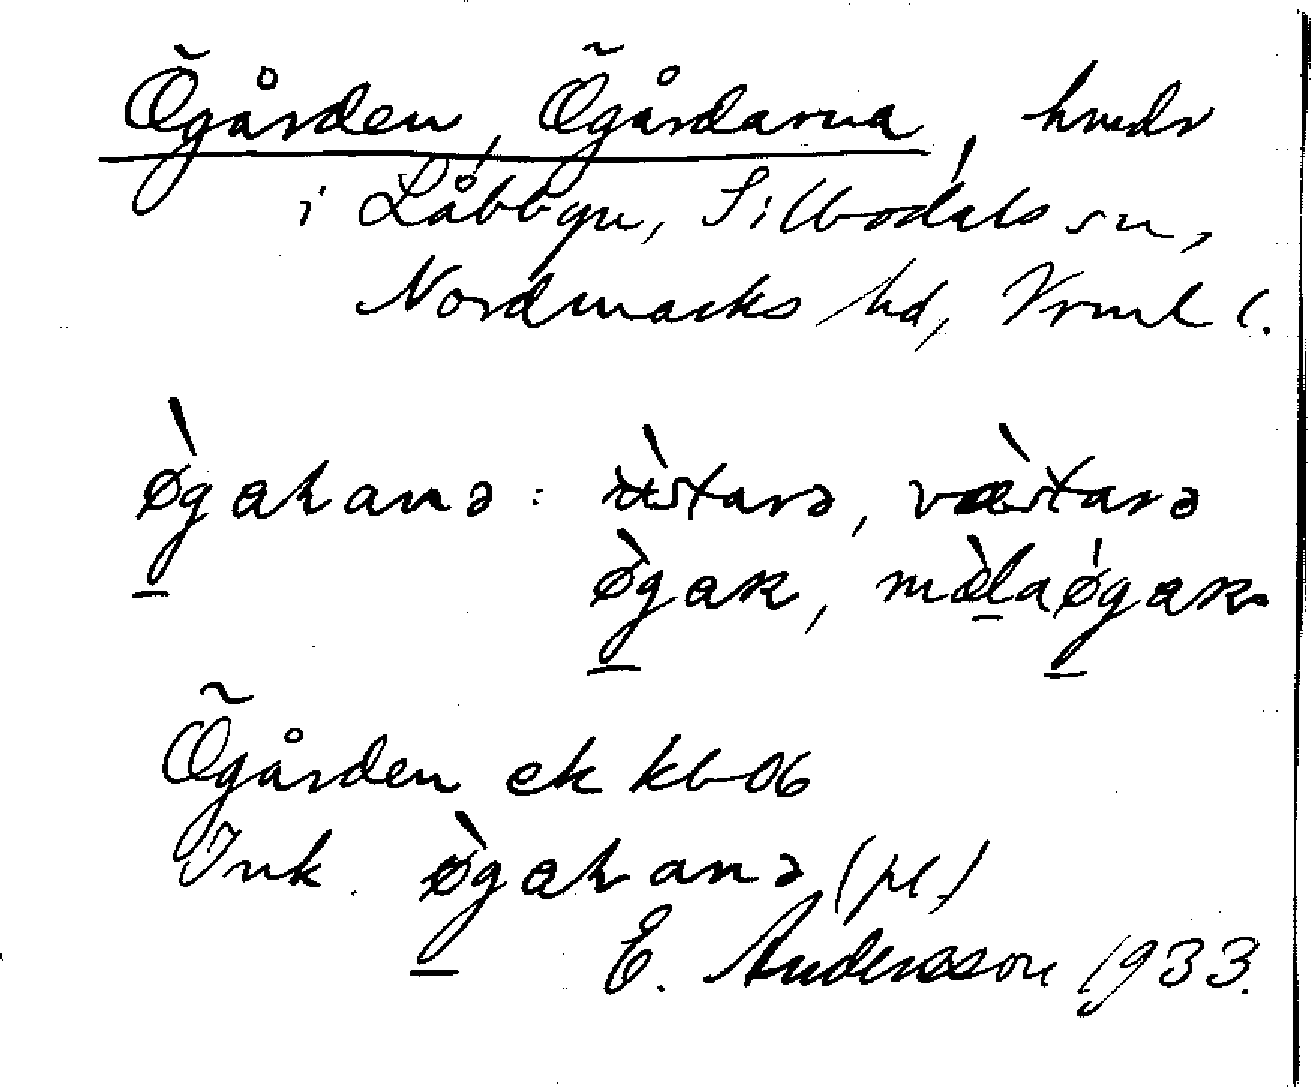 Ögården, Ögårdarna, hmdr
i Låbbyn, Silbodals sn,
Nordmarks hd, Vrml l.
ø̀gaʀanə: ùstarə, væ̀starə
ø̀gaʀ, mæ̀laǿgaʀ
Ögården ek kb 06
Ink. ø̀gaʀanə (pl.)
E. Andersson 1933.